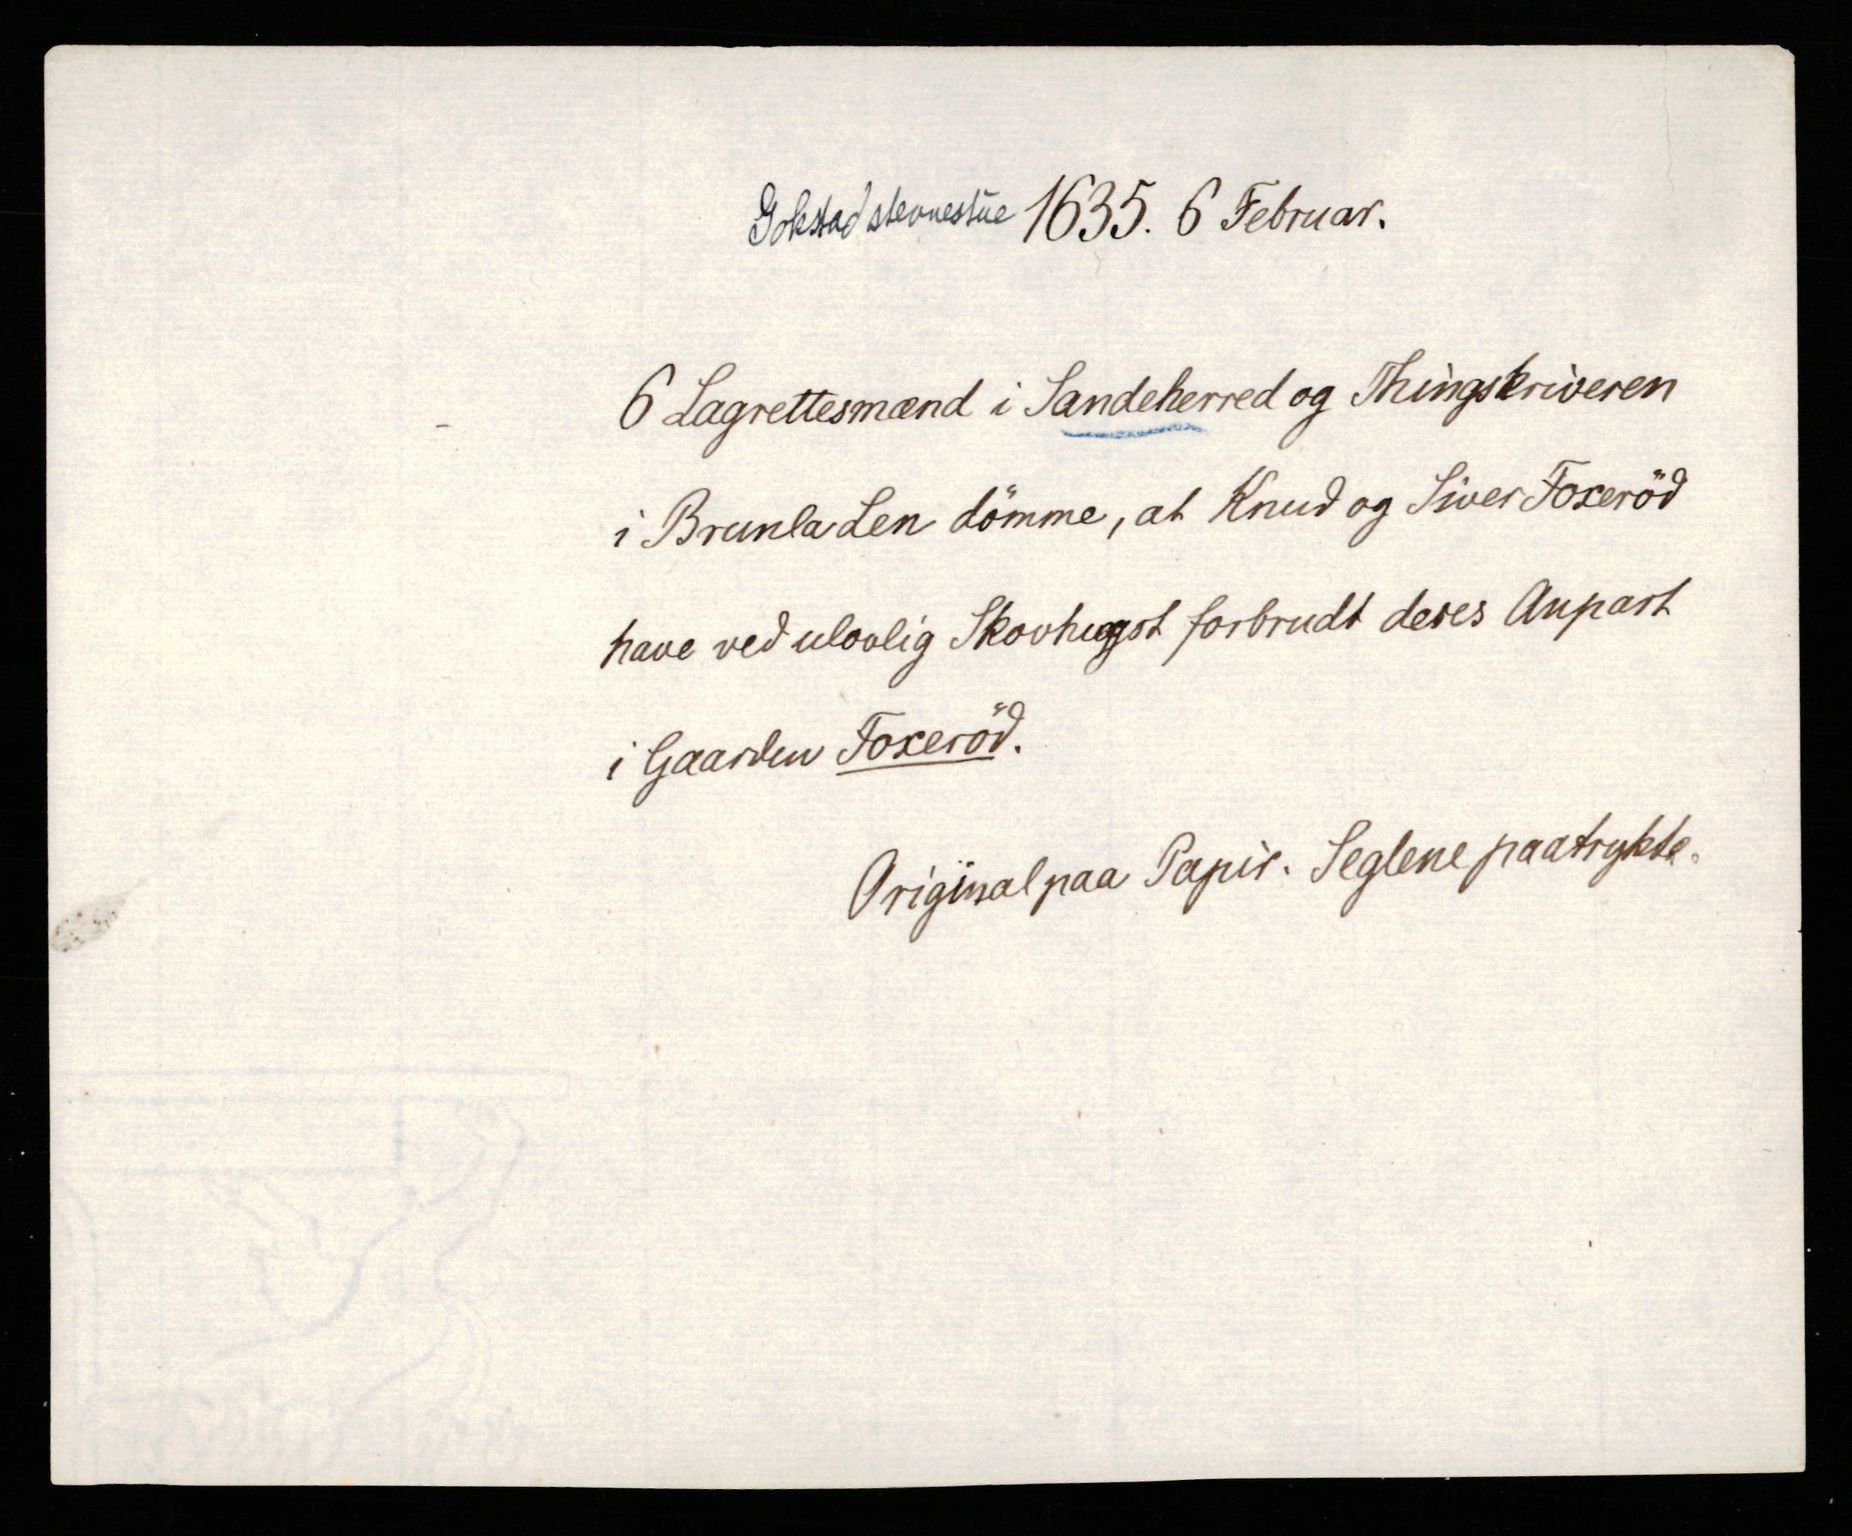 Gokstad stevnestue 1635. 6 Februar.
6 Lagrettesmænd i Sandeherred og Thingskriveren
i Brunla Len dömme, at Knud og Siver Foxeröd
have ved ulovlig Skovhugst forbrudt deres Anpart
i Gaarden Foxeröd.
Original paa Papir. Seglene paatrykte.